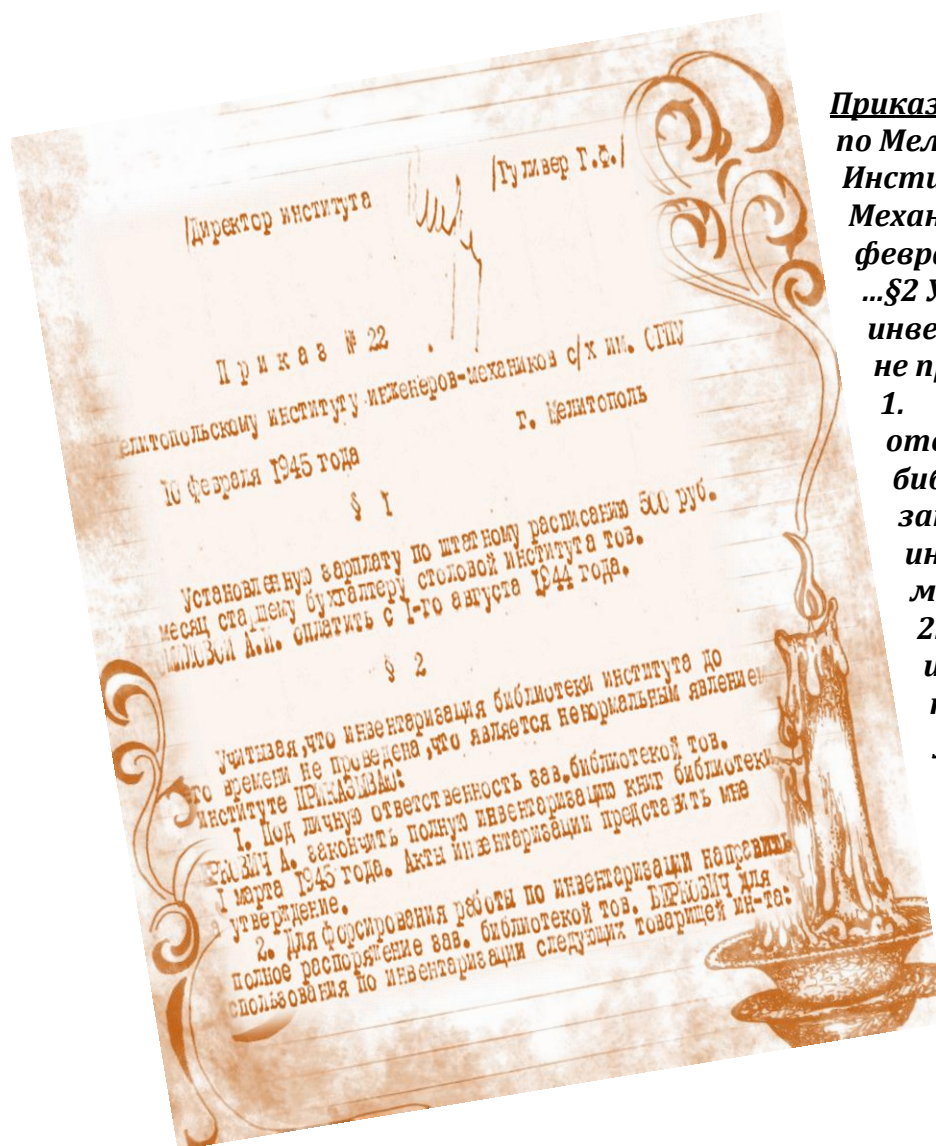 /Директор института /Гуливер Г.Ф./
Приказ № 22
елитопольскому институту инженеров-механиков с/х им. СГПУ
10 февраля 1945 года г. Мелитополь
§ I
Установленную зарплату по штатному расписанию 500 руб.
месяц старшему бухгалтеру столовой института тов.
МИЛОВОЙ А.И. оплатить с I-го августа 1944 года.
§ 2
Учитывая,что инвентаризация библиотеки института до
го времени не проведена,что является ненормальным явлением
институте ПРИКАЗЫВАЮ:
I. Под личную ответственность зав.библиотекой тов.
РКОВИЧ А. закончить полную инвентаризацию книг библиотеки
I марта 1945 года. Акты инвентаризации представить мне
утверждение.
2. Для форсирования работы по инвентаризации направить
полное распоряжение зав. библиотекой тов. БИРКОВИЧ для
спользования по инвентаризации следующих товарищей ин-та:
Приказ
по Мел
Инсти
Механ
февра
...§2 У
инве
не пр
1.
отв
биб
зак
ин
м
2.
и